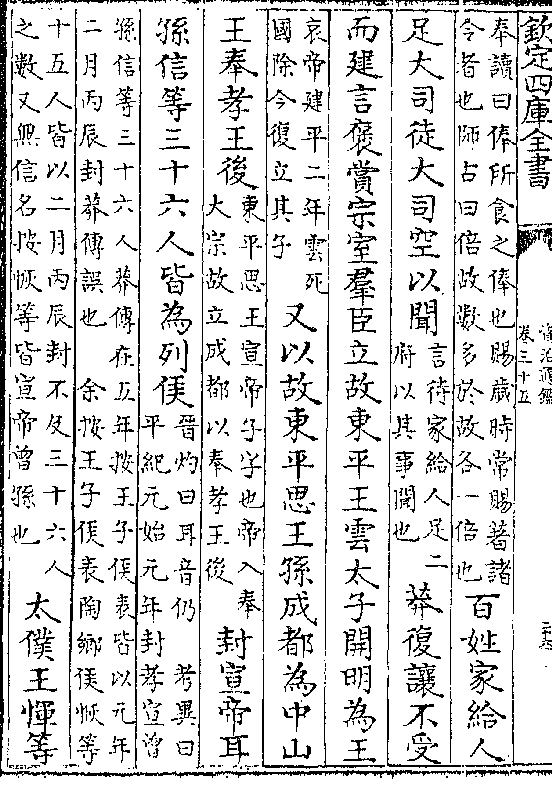 欽定四庫全書
資治通鑑
卷三十五
奉讀曰俸所食之俸也賜歲時常賜著諸
令者也師古曰倍故數多於故各一倍也
百姓家給人
足大司徒大司空以聞
言待家給人足二
府以其事聞也
莽復讓不受
而建言褒賞宗室羣臣立故東平王雲太子開明為王
哀帝建平二年雲死
國除今復立其子
又以故東平思王孫成都為中山
王奉孝王後
東平思王宣帝子宇也帝入奉
大宗故立成都以奉孝王後
封宣帝耳
孫信等三十六人皆為列侯
晉灼曰耳音仍 考異曰
平紀元始元年封孝宣曾
孫信等三十六人莽傳在五年按王子侯表皆以元年
二月丙辰封莽傳誤也 余按王子侯表陶鄉侯恢等
十五人皆以二月丙辰封不及三十六人
之數又無信名按恢等皆宣帝曾孫也
太僕王惲等